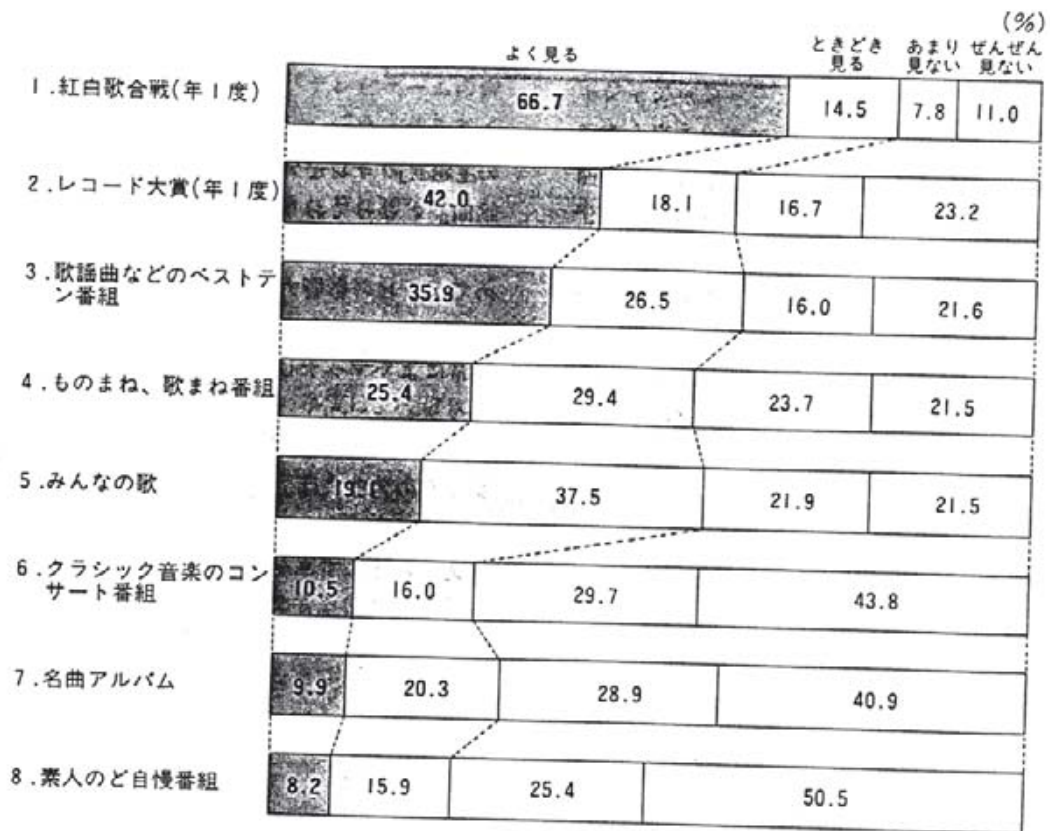 (%)
よく見る ときどき見る あまり見ない ぜんぜん見ない
1.紅白歌合戦(年1度) 66.7 14.5 7.8 11.0
2.レコード大賞(年1度) 42.0 18.1 16.7 23.2
3.歌謡曲などのベストテ
ン番組 35.9 26.5 16.0 21.6
4.ものまね、歌まね番組 25.4 29.4 23.7 21.5
5.みんなの歌 19.1 37.5 21.9 21.5
6.クラシック音楽のコン
サート番組 10.5 16.0 29.7 43.8
7.名曲アルバム 9.9 20.3 28.9 40.9
8.素人のど自慢番組 8.2 15.9 25.4 50.5